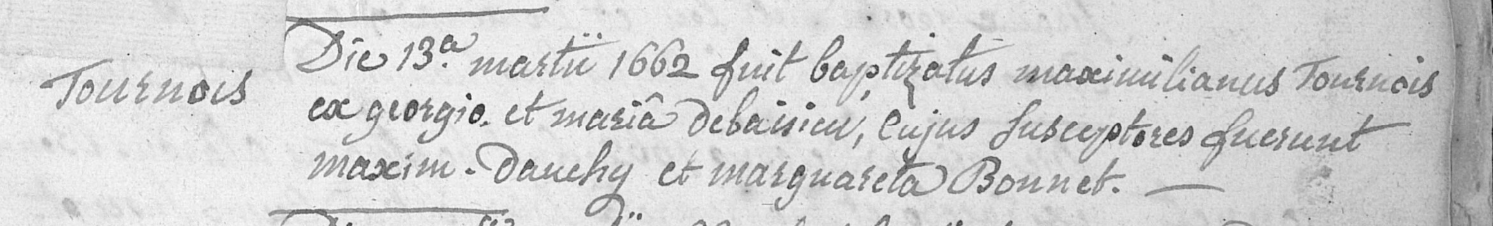 Tournois
Die 13.a martii 1662 fuit baptizatus maximilianus Tournois
ex georgio et mariâ debaisieu, Cujus susceptores fuerunt
maxim. Dauchy et marguareta Bonnet. —